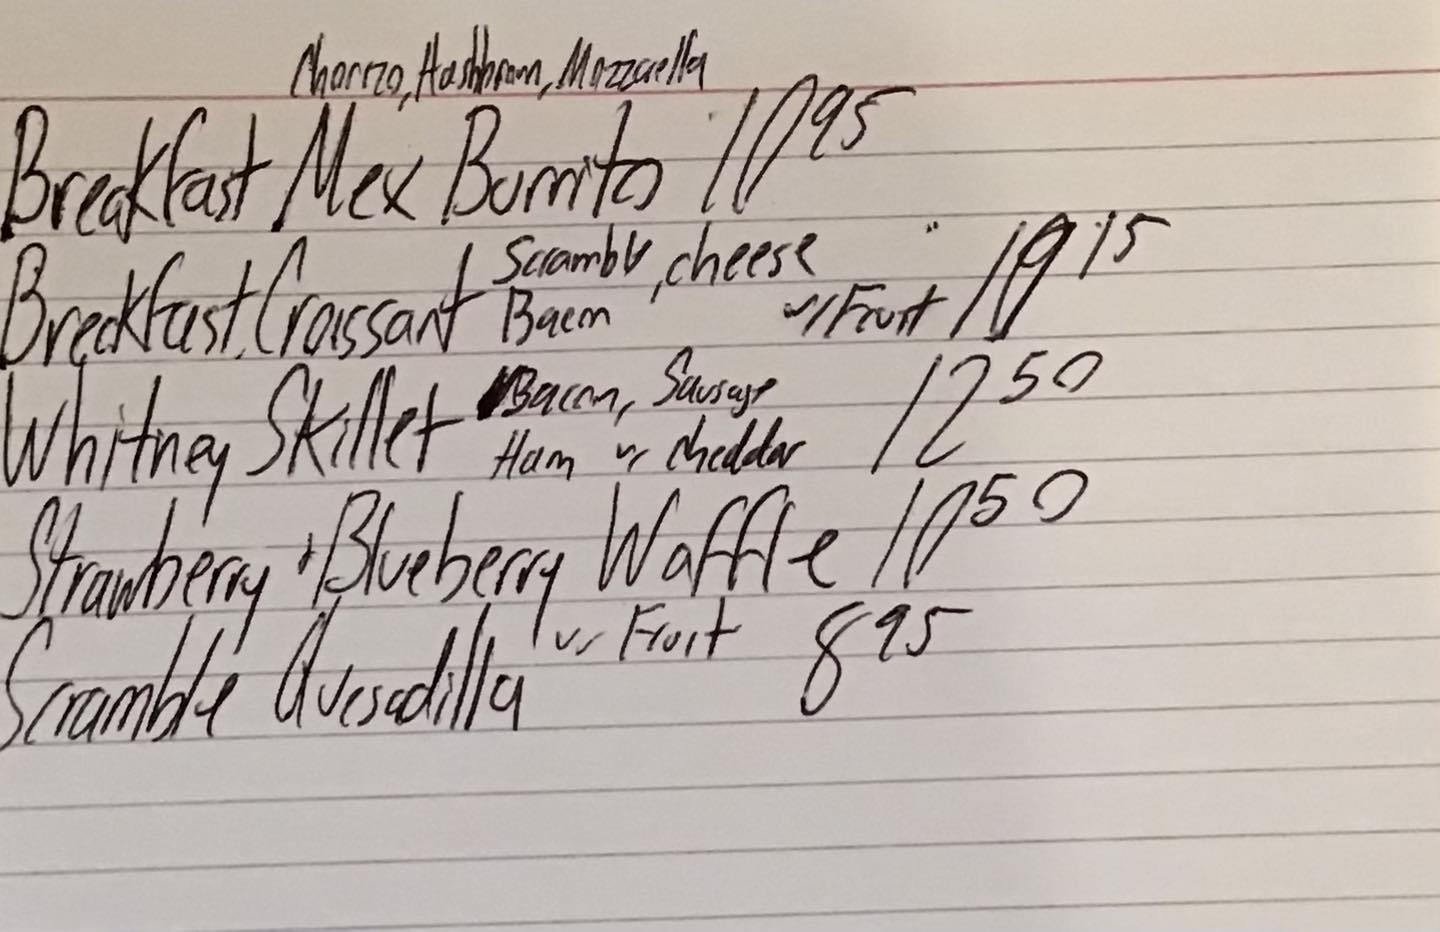 Chorizo, Hashbrown, Mozzarella
Breakfast Mex Burrito 10 95
Breakfast Croissant Scramble, cheese
Bacon w/ Fruit 10 15
Whitney Skillet Bacon, Sausage
Ham w/ Cheddar 12 50
Strawberry + Blueberry Waffle 10 50
Scramble Quesadilla w/ Fruit 8 95